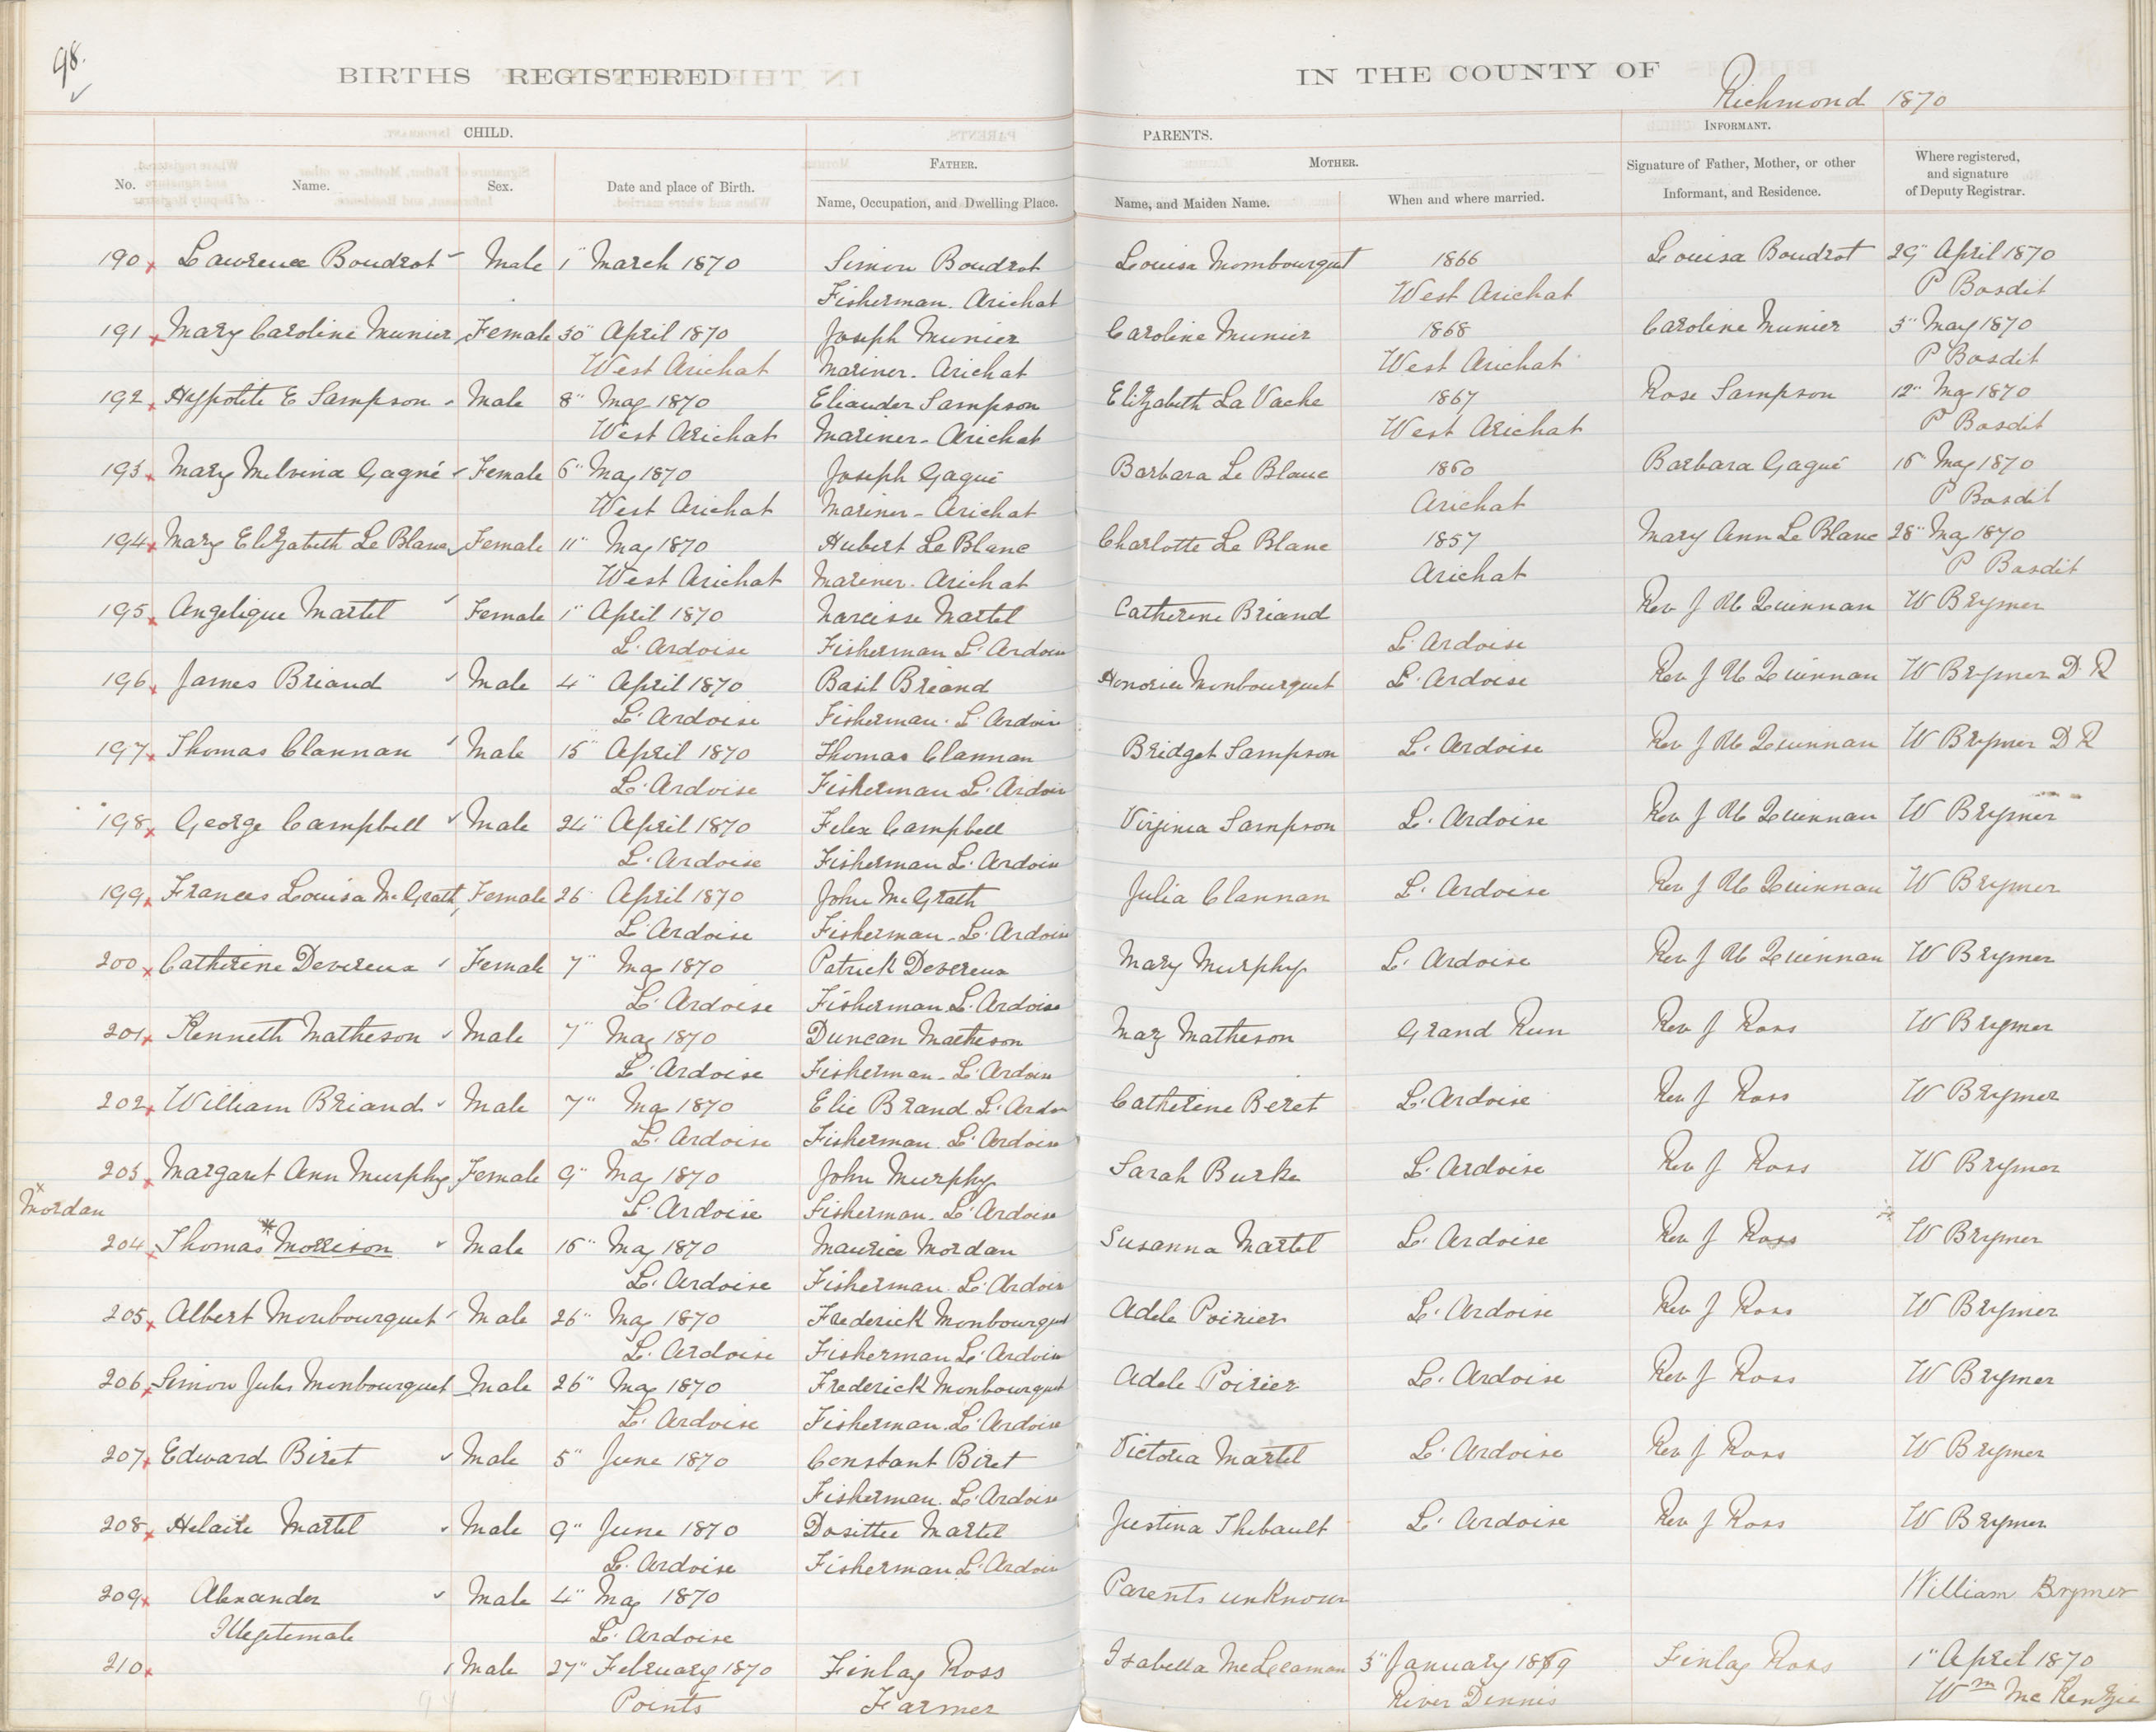 98.
BIRTHS REGISTERED IN THE COUNTY OF Richmond 1870
CHILD. PARENTS. INFORMANT.
No. Name. Sex. Date and place of Birth. FATHER. Name, Occupation, and Dwelling Place. MOTHER. Name, and Maiden Name. When and where married. Signature of Father, Mother, or other Informant, and Residence. Where registered, and signature of Deputy Registrar.
190 Lawrence Boudrot Male 1" March 1870 Simon Boudrot Louisa Mombourquet 1866 Louisa Boudrot 29" April 1870
Fisherman. Arichat West Arichat P Bosdit
191 Mary Caroline Munier Female 30" April 1870 Joseph Munier Caroline Munier 1868 Caroline Munier 3" May 1870
West Arichat Mariner. Arichat West Arichat P Bosdit
192 Hyppolite E Sampson Male 8" May 1870 Eliander Sampson Elizabeth La Vache 1867 Rose Sampson 12" May 1870
West Arichat Mariner - Arichat West Arichat P Bosdit
193 Mary Melvina Gagné Female 6" May 1870 Joseph Gagné Barbara Le Blanc 1860 Barbara Gagné 15" May 1870
West Arichat Mariner - Arichat Arichat P Bosdit
194 Mary Elizabeth Le Blanc Female 11" May 1870 Hubert Le Blanc Charlotte Le Blanc 1857 Mary Ann Le Blanc 28" May 1870
West Arichat Mariner. Arichat Arichat P Bosdit
195 Angelique Martel Female 1" April 1870 Narcisse Martel Catherine Briand Rev J Quinnan W Brymer
L'Ardoise Fisherman L'Ardoise L'Ardoise
196 James Briand Male 4" April 1870 Basil Briand Honorice Monbourquet L'Ardoise Rev J Quinnan W Brymer D. R
L'Ardoise Fisherman. L'Ardoise
197 Thomas Clannan Male 15" April 1870 Thomas Clannan Bridget Sampson L'Ardoise Rev J Quinnan W Brymer D R
L'Ardoise Fisherman L'Ardoise
198 George Campbell Male 24" April 1870 Felix Campbell Virginia Sampson L'Ardoise Rev J Quinnan W Brymer
L'Ardoise Fisherman L'Ardoise
199 Frances Louisa McGrath Female 26" April 1870 John McGrath Julia Clannan L'Ardoise Rev J Quinnan W Brymer
L'Ardoise Fisherman - L'Ardoise
200 Catherine Devereux Female 7" May 1870 Patrick Devereux Mary Murphy L'Ardoise Rev J Quinnan W Brymer
L'Ardoise Fisherman L'Ardoise
201 Kenneth Matheson Male 7" May 1870 Duncan Matheson Mary Matheson Grand Run Rev J Ross W Brymer
L'Ardoise Fisherman - L'Ardoise
202 William Briand Male 7" May 1870 Elie Brand L'Ardoise Catherine Beret L'Ardoise Rev J Ross W Brymer
L'Ardoise Fisherman. L'Ardoise
203 Margaret Ann Murphy Female 9" May 1870 John Murphy Sarah Burke L'Ardoise Rev J Ross W Brymer
x Mordan L'Ardoise Fisherman. L'Ardoise
204 Thomas * Morrison Male 15" May 1870 Maurice Mordan Susanna Martel L'Ardoise Rev J Ross W Brymer
L'Ardoise Fisherman. L'Ardoise
205 Albert Monbourquet Male 26" May 1870 Frederick Monbourquet Adele Poirier L'Ardoise Rev J Ross W Brymer
L'Ardoise Fisherman L'Ardoise
206 Simon Jules Monbourquet Male 26" May 1870 Frederick Monbourquet Adele Poirier L'Ardoise Rev J Ross W Brymer
L'Ardoise Fisherman L'Ardoise
207 Edward Biret Male 5" June 1870 Constant Biret Victoria Martel L'Ardoise Rev J Ross W Brymer
Fisherman. L'Ardoise
208 Helaire Martel Male 9" June 1870 Dosittee Martel Justina Thibault L'Ardoise Rev J Ross W Brymer
L'Ardoise Fisherman L'Ardoise
209 Alexander Male 4" May 1870 Parents unknown William Brymer
Illegitemate L'Ardoise
210 Male 27" February 1870 Finlay Ross Isabella McLeaman 3" January 1869 Finlay Ross 1" April 1870
Points Farmer River Dennis Wm McKenzie